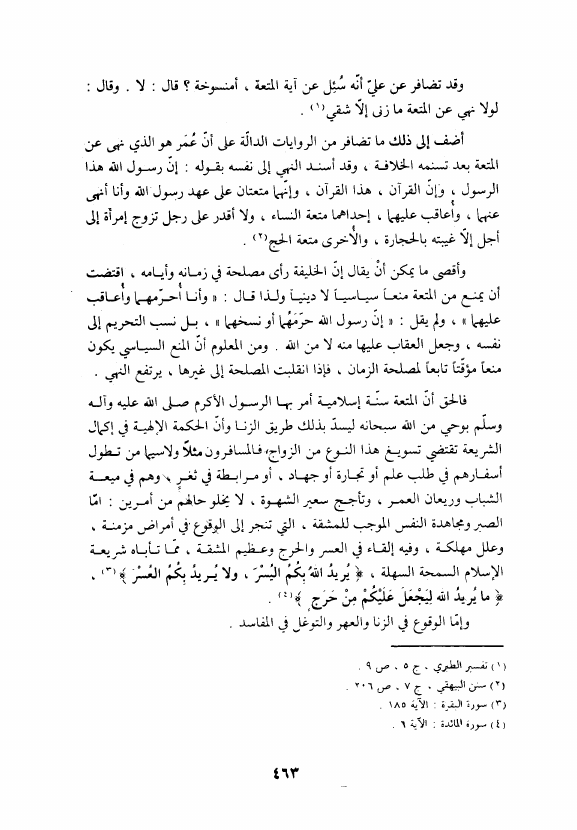 وقد تضافر عن عليّ أنّه سُئِل عن آية المتعة ، أمنسوخة ؟ قال : لا . وقال :
لولا نهي عن المتعة ما زنى إلّا شقي(١) .
أضف إلى ذلك ما تضافر من الروايات الدالّة على أنّ عُمَر هو الذي نهى عن
المتعة بعد تسنمه الخلافة ، وقد أسند النهي إلى نفسه بقوله : إنّ رسول الله هذا
الرسول ، وإنّ القرآن ، هذا القرآن ، وإنّهما متعتان على عهد رسول الله وأنا أنهى
عنهما ، وأُعاقب عليهما ، إحداهما متعة النساء ، ولا أقدر على رجل تزوج إمرأة إلى
أجل إلّا غيبته بالحجارة ، والأُخرى متعة الحج(٢) .
وأقصى ما يمكن أنْ يقال إنّ الخليفة رأى مصلحة في زمانه وأيامه ، اقتضت
أن يمنع من المتعة منعاً سياسياً لا دينياً ولذا قال : « وأنا أُحرّمهما وأُعاقب
عليهما » ، ولم يقل : « إنّ رسول الله حرّمَهُما أو نسخهما » ، بل نسب التحريم إلى
نفسه ، وجعل العقاب عليها منه لا من الله . ومن المعلوم أنّ المنع السياسي يكون
منعاً مؤقّتاً تابعاً لمصلحة الزمان ، فإذا انقلبت المصلحة إلى غيرها ، يرتفع النهي .
فالحق أنّ المتعة سنّة إسلامية أمر بها الرسول الأكرم صلى الله عليه وآله
وسلّم بوحي من الله سبحانه ليسدّ بذلك طريق الزنا وأنّ الحكمة الإلهية في إكمال
الشريعة تقتضي تسويغ هذا النوع من الزواج، فالمسافرون مثلاً ولاسيما من تطول
أسفارهم في طلب علم أو تجارة أو جهاد ، أو مرابطة في ثغرٍ ، وهم في ميعة
الشباب وريعان العمر ، وتأجج سعير الشهوة ، لا يخلو حالهم من أمرين : امّا
الصبر ومجاهدة النفس الموجب للمشقة ، التي تنجر إلى الوقوع في أمراض مزمنة ،
وعلل مهلكة ، وفيه إلقاء في العسر والحرج وعظيم المشقة ، ممّا تأباه شريعة
الإسلام السمحة السهلة ، ﴿ يُرِيدُ اللهُ بِكُمُ اليُسْرَ ، ولا يُرِيدُ بِكُمُ العُسْرَ ﴾(٣) ،
﴿ ما يُرِيدُ الله لِيَجْعَلَ عَلَيْكُمْ مِنْ حَرَجٍ ﴾(٤) .
وإمّا الوقوع في الزنا والعهر والتوغل في المفاسد .
(١) تفسير الطبري ، ج ٥ ، ص ٩ .
(٢) سنن البيهقي ، ج ٧ ، ص ٢٠٦ .
(٣) سورة البقرة : الآية ١٨٥ .
(٤) سورة المائدة : الآية ٦ .
٤٦٣